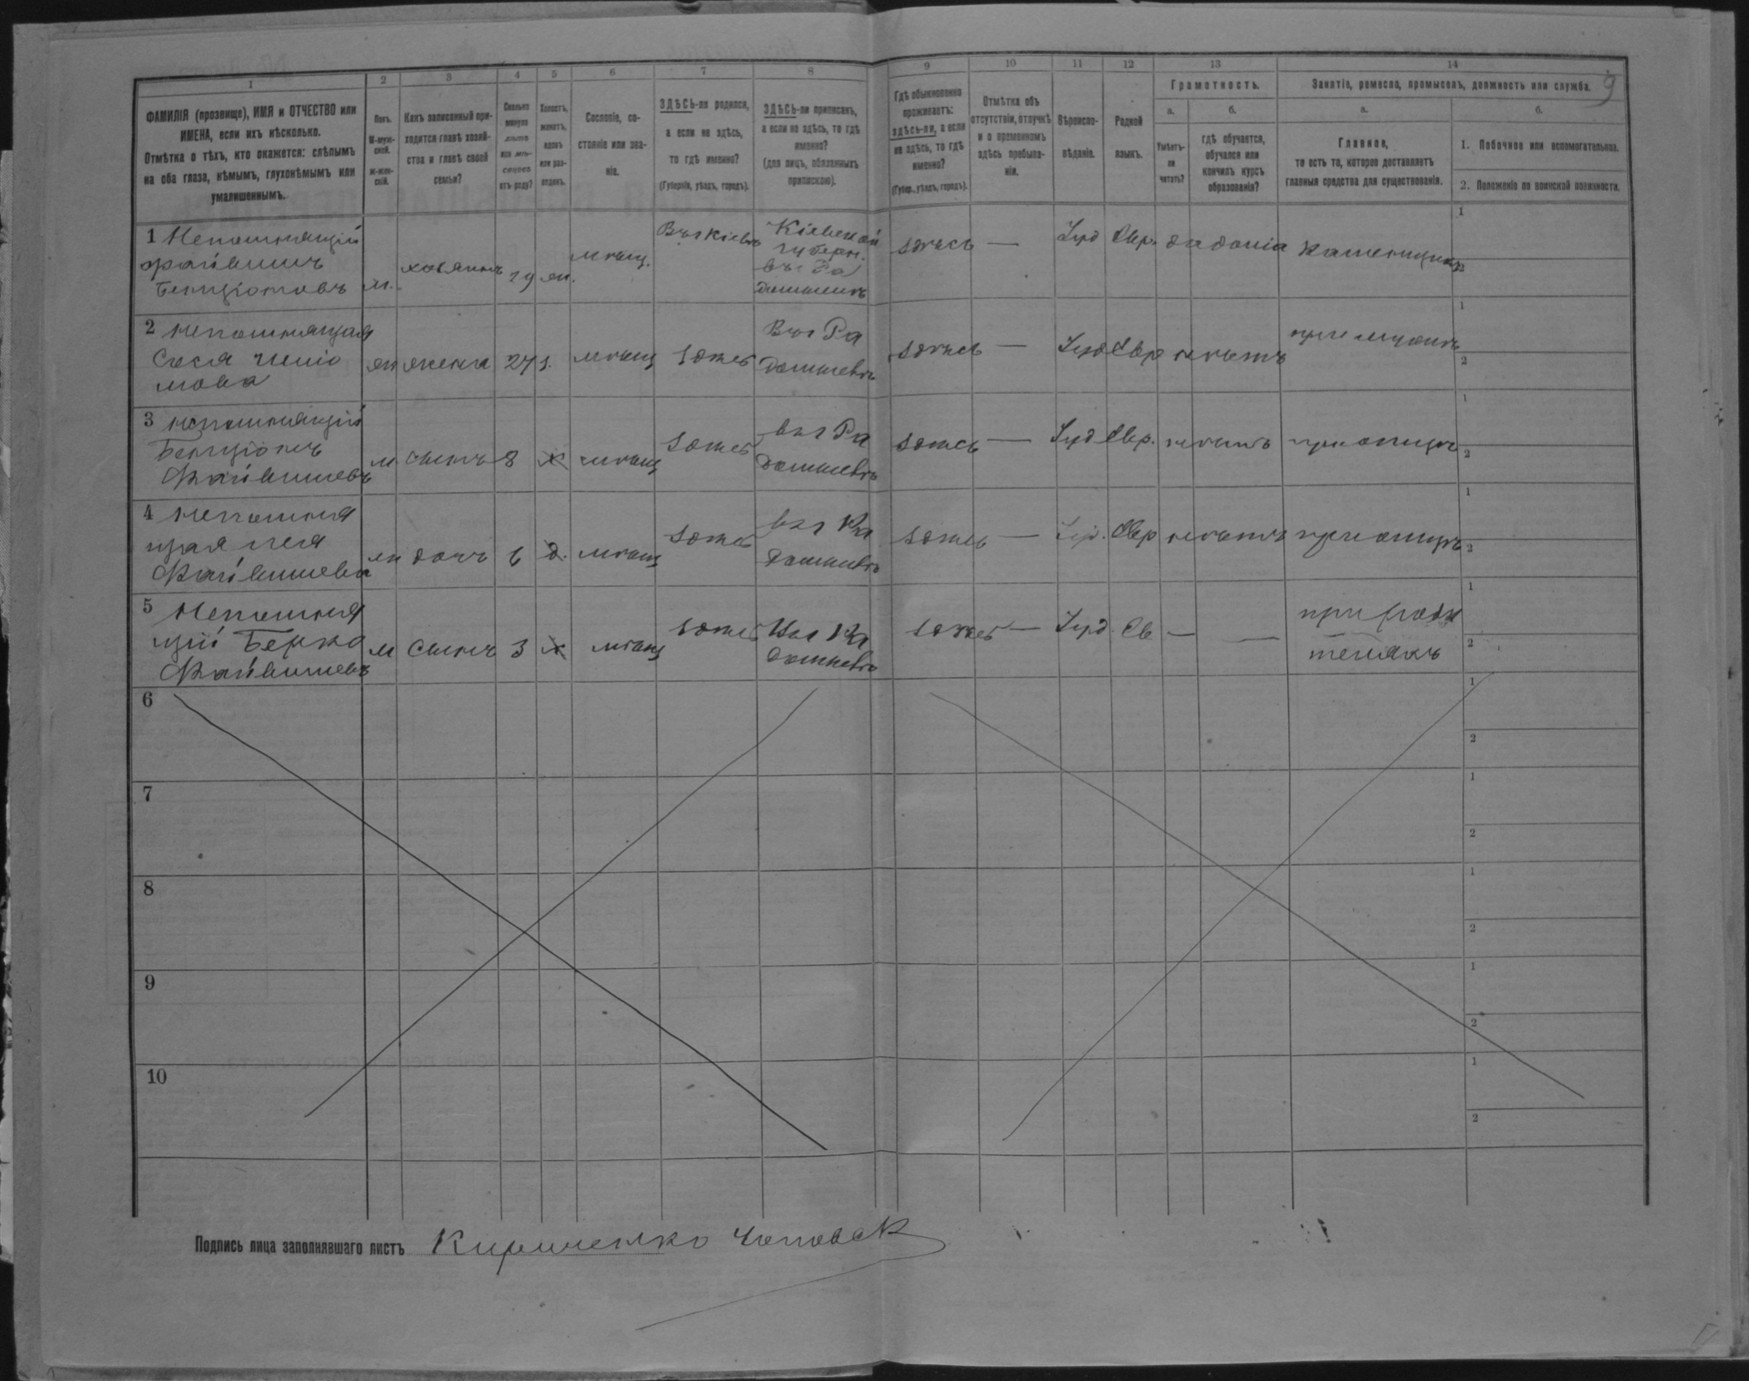 9
1 2 3 4 5 6 7 8 9 10 11 12 13 14
ФАМИЛІЯ (прозвище), ИМЯ и ОТЧЕСТВО или
ИМЕНА, если ихъ нѣсколько.
Отмѣтка о тѣхъ, кто окажется: слѣпымъ
на оба глаза, нѣмымъ, глухонѣмымъ или
умалишеннымъ.
Полъ.
М-муж-
ской.
ж-жен-
скій.
Какъ записанный при-
ходится главѣ хозяй-
ства и главѣ своей
семьи?
Сколько
минуло
лѣтъ
или мѣ-
сяцевъ
отъ роду?
Холостъ,
женатъ,
вдовъ
или раз-
веденъ.
Сословіе, со-
стояніе или зва-
ніе.
ЗДѢСЬ-ли родился,
а если не здѣсь,
то гдѣ именно?
(Губернія, уѣздъ, городъ).
ЗДѢСЬ-ли приписанъ,
а если не здѣсь, то гдѣ
именно?
(для лицъ, обязанныхъ
припискою).
Гдѣ обыкновенно
проживаетъ:
здѣсь-ли, а если
не здѣсь, то гдѣ
именно?
(Губер., уѣздъ, городъ).
Отмѣтка объ
отсутствіи, отлучкѣ
и о временномъ
здѣсь пребыва-
ніи.
Вѣроиспо-
вѣданіе.
Родной
языкъ.
Грамотность.
а. б.
Умѣетъ-
ли
читать?
гдѣ обучается,
обучался или
кончилъ курсъ
образованія?
Занятіе, ремесло, промыселъ, должность или служба.
а. б.
Главное,
то есть то, которое доставляетъ
главныя средства для существованія.
1. Побочное или вспомогательное.
2. Положеніе по воинской повинности.
1 Непомнящій
Файвишъ
Бенціоновъ
м. хозяинъ 29 жн. мѣщ. Въ г Кіевѣ
Кіевской
губерн.
въ г Ра
домыслѣ
здѣсь — Іуд Евр. да дома
1
2
2 непомнящая
Сося
жн жена 27 з. мѣщ здѣсь
Въ г Ра
здѣсь — Іуд Евр нѣтъ при мужѣ
1
2
3 непомнящій
Бенціонъ
Файвишевъ
м. сынъ 8 х мѣщ здѣсь
въ г Ра
здѣсь — Іуд Евр. нѣтъ при отцѣ
1
2
4 непомня
щая
Файвишева
жн дочь 6 д. мѣщ здѣсь
въ г Ра
здѣсь — Іуд. Евр нѣтъ при отцѣ
1
2
5 Непомня
щій Берко
Файвишевъ
м сынъ 3 х мѣщ здѣсь
здѣсь — Іуд. Ев — —
при роди
теляхъ
1
2
6
1
2
7
1
2
8
1
2
9
1
2
10
1
2
Подпись лица заполнявшаго листъ